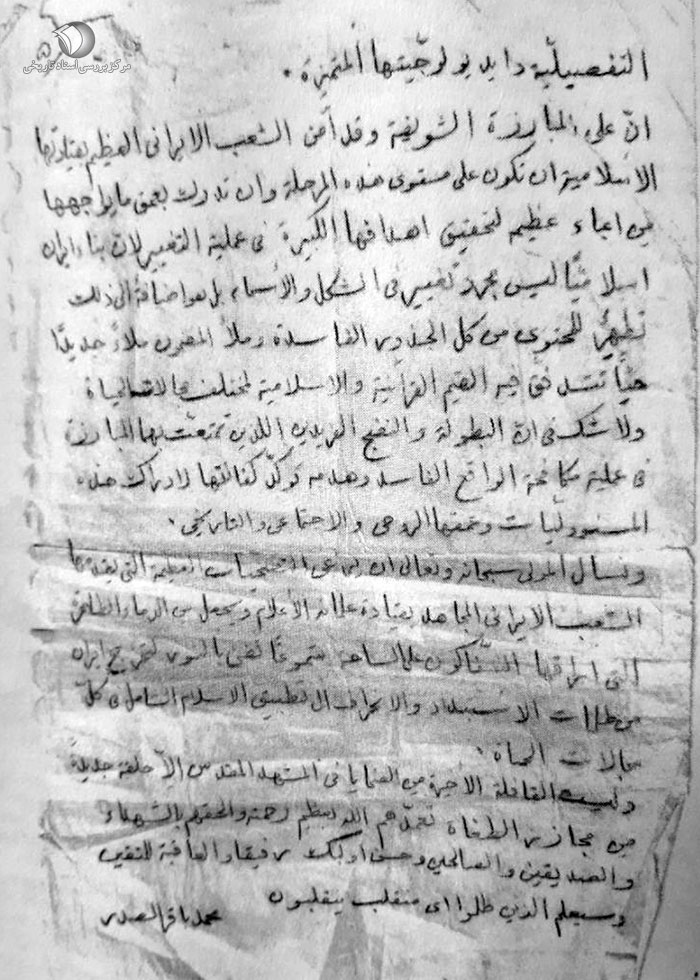 مرکز بررسی اسناد تاریخی
التفصيليّة وايديولوجيّتها المتميزة .
انّ على المبارزة الشريفة وقد آمن الشعب الايراني العظيم بقيادتها
الاسلامية ان تكون على مستوى هذه المرحلة وان تدرك بعمق ما يواجهها
من اعباء عظيم لتحقيق اهدافها الكبيرة في عملية التغيير لان بناء ايران
اسلاميّا ليس مجرد تغيير في الشكل والأسماء بل هو اضافة الى ذلك
تطهير للمحتوى من كل الجذور الفاسدة وملأ المضمون ملأ جديدًا
حيّا تتدفق فيه القيم القرآنية والاسلامية لمختلف مجالات الحياة
ولا شك في ان البطولة والنضج الفريدين اللذين تمتعت بها المبارزة
في عملية مكافحة الواقع الفاسد وهدمه تؤكد كفائتها لادراك هذه
المسؤوليات وعمقها الروحي والاجتماعي والتاريخي .
ونسأل المولى سبحانه وتعالى ان يرعى التضحيات العظيمة التي يقدمها
الشعب الايراني المجاهد بقيادة علمائه الأعلام ويجعل من الدماء الطاهرة
التي اراقها السفّاكون على الساحة شموعًا تضئ بالنور لتخرج ايران
من ظلمات الاستبداد والانحراف الى تطبيق الاسلام الشامل في كلّ
مجالات الحياة .
وليست القافلة الأخيرة من الضحايا في المشهد المقدس الّا حلقة جديدة
من مجازر الطغاة تغمّدهم الله بعظيم رحمته والحقهم بالشهداء
والصديقين والصالحين وحسن اولئك رفيقا والعاقبة للمتقين
وسيعلم الذين ظلموا اي منقلب ينقلبون
محمد باقر الصدر